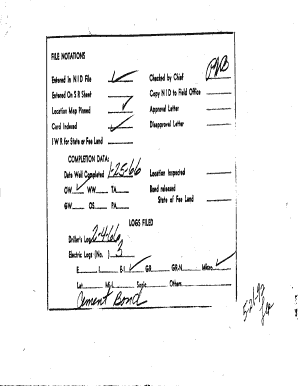 FILE NOTATIONS
Entered In N I D File ✓ Checked by Chief PMB
Entered On S R Sheet Copy N I D to Field Office
Location Map Pinned ✓ Approval Letter
Card Indexed ✓ Disapproval Letter
I W R for State or Fee Land
COMPLETION DATA:
Date Well Completed 1-25-66 Location Inspected
OW ✓ WW TA Bond released
GW OS PA State of Fee Land
LOGS FILED
Driller's Log 2-4-66
Electric Logs (No. ) 3
E I E-I ✓ GR GR-N Micro ✓
Lat Mi-L Sonic Others
Cement Bond